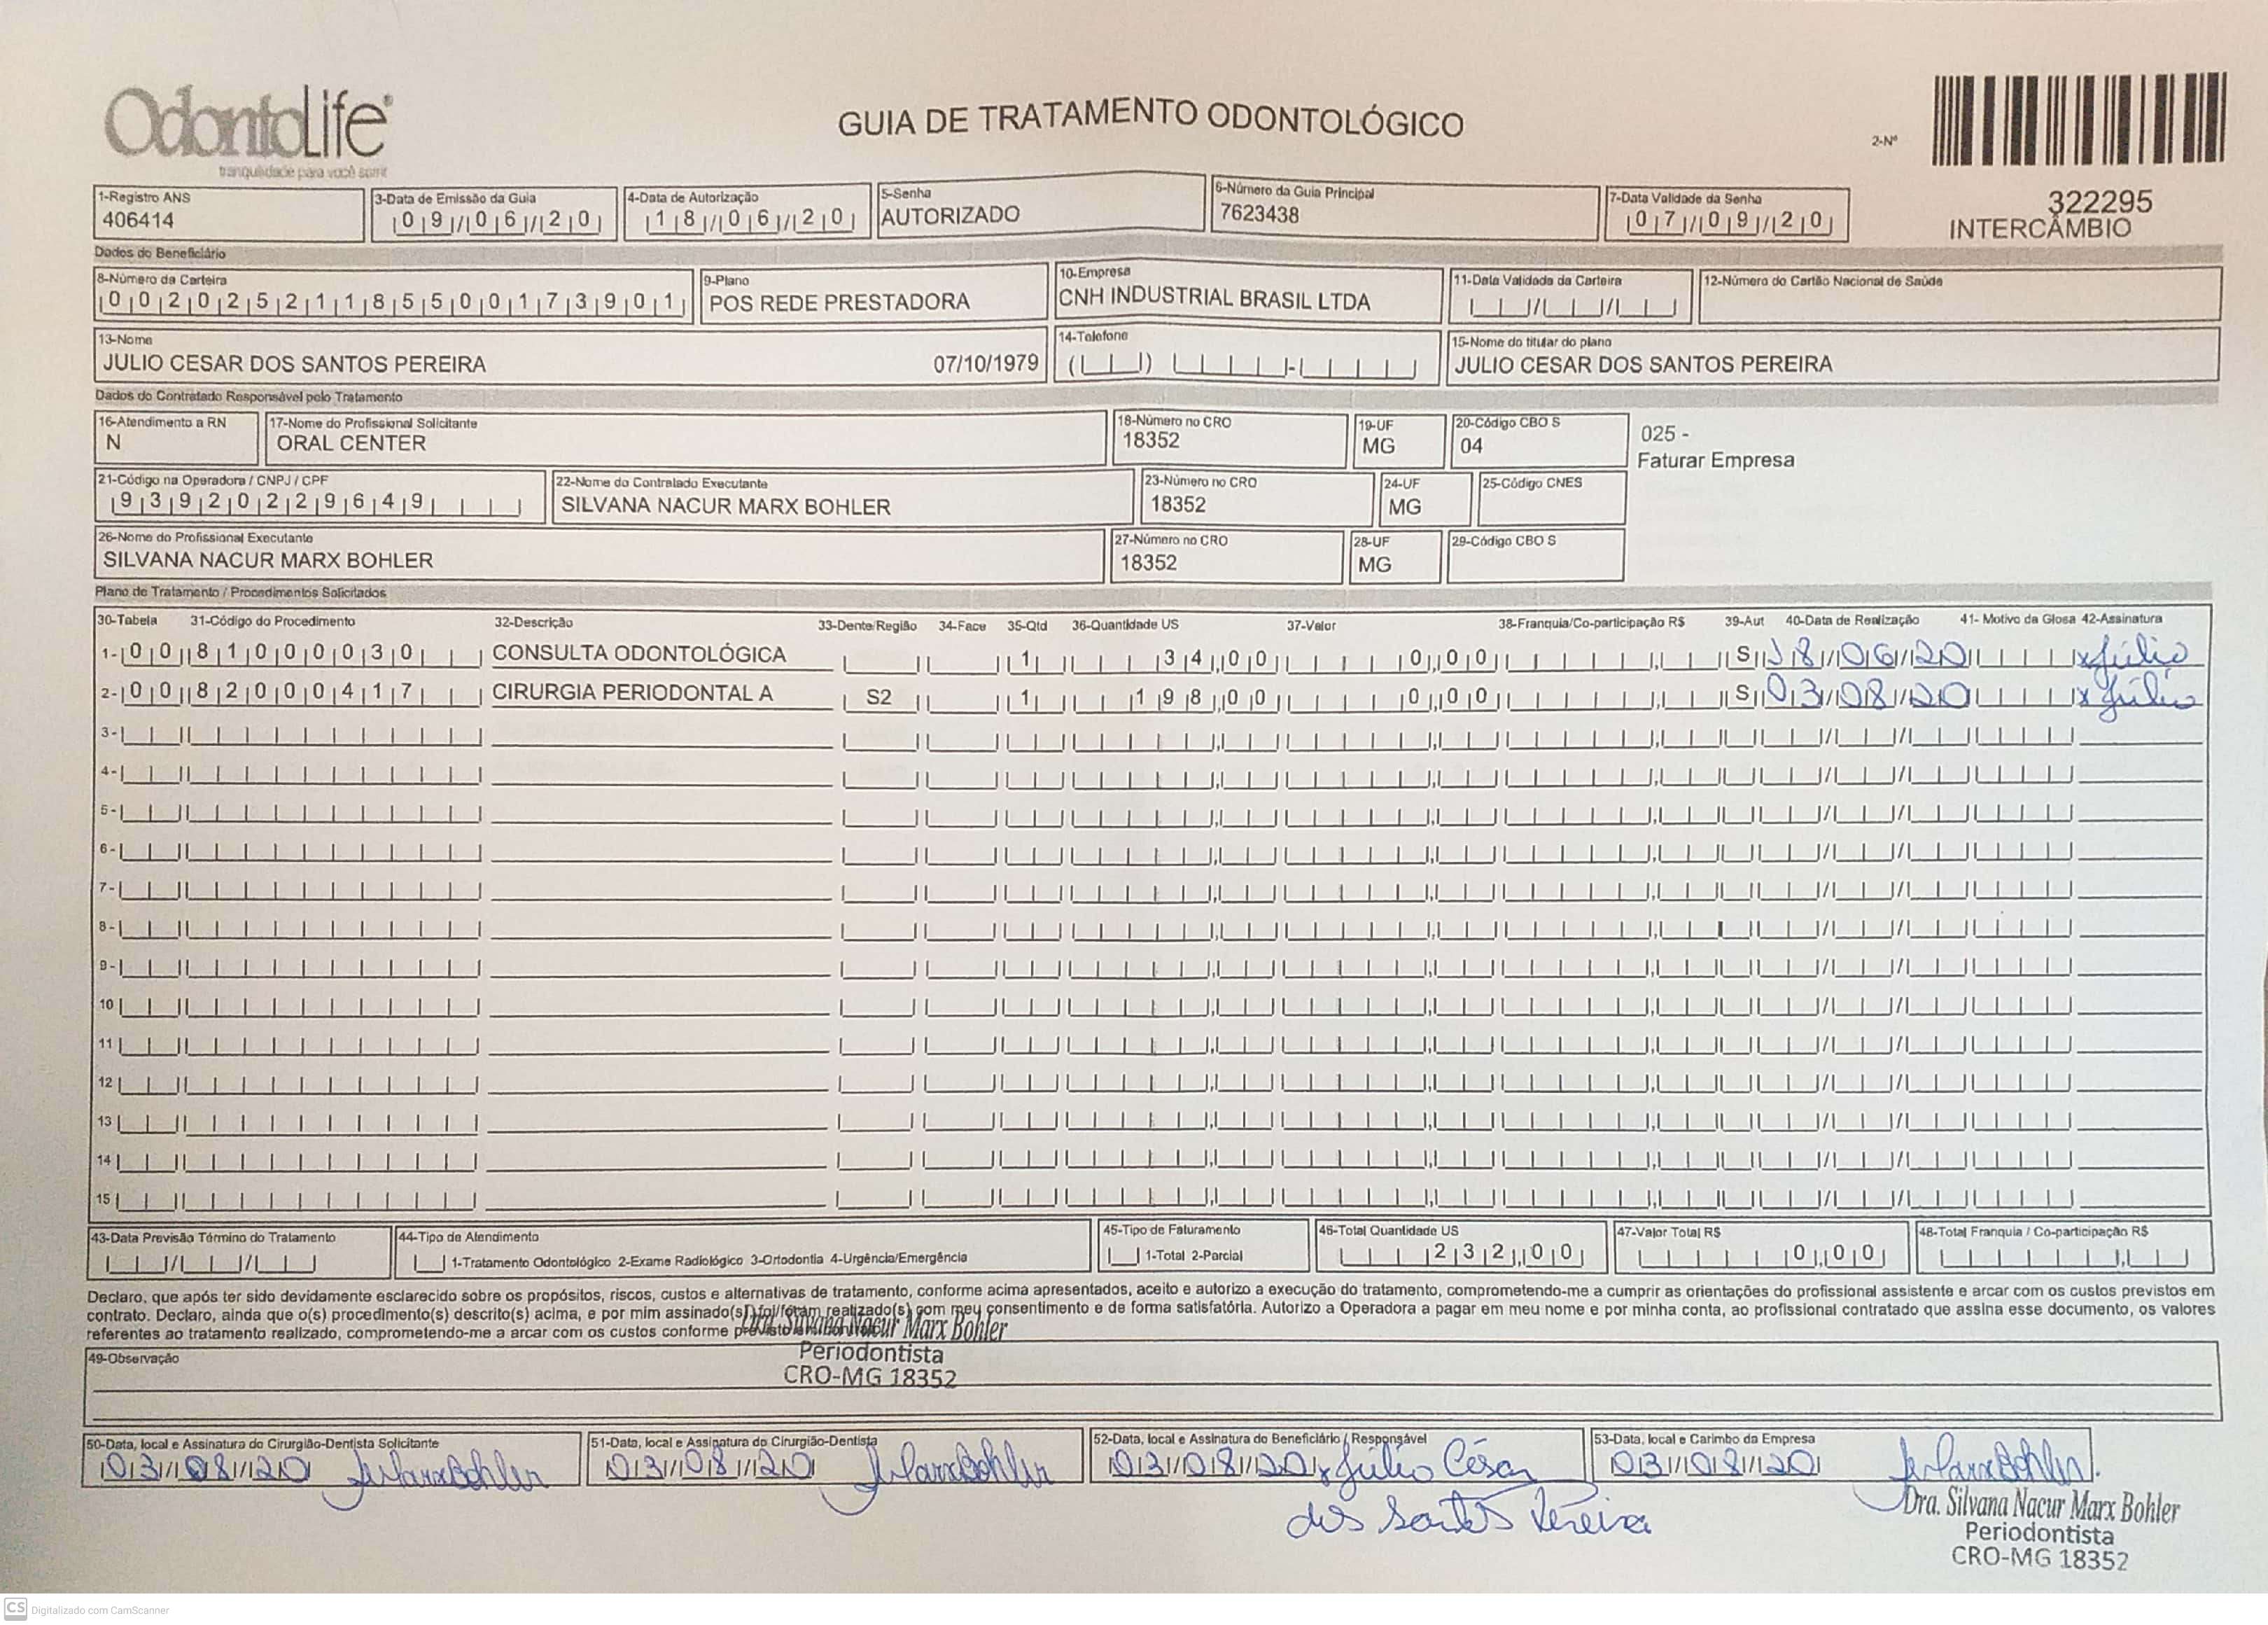 OdontoLife®
tranquilidade para você sorrir
GUIA DE TRATAMENTO ODONTOLÓGICO
2-Nº
322295
INTERCÂMBIO
1-Registro ANS
406414
3-Data de Emissão da Guia
09/06/20
4-Data de Autorização
18/06/20
5-Senha
AUTORIZADO
6-Número da Guia Principal
7623438
7-Data Validade da Senha
07/09/20
Dados do Beneficiário
8-Número da Carteira
00202521185500173901
9-Plano
POS REDE PRESTADORA
10-Empresa
CNH INDUSTRIAL BRASIL LTDA
11-Data Validade da Carteira
12-Número do Cartão Nacional de Saúde
13-Nome
JULIO CESAR DOS SANTOS PEREIRA 07/10/1979
14-Telefone
15-Nome do titular do plano
JULIO CESAR DOS SANTOS PEREIRA
Dados do Contratado Responsável pelo Tratamento
16-Atendimento a RN
N
17-Nome do Profissional Solicitante
ORAL CENTER
18-Número no CRO
18352
19-UF
MG
20-Código CBO S
04
025 -
Faturar Empresa
21-Código na Operadora / CNPJ / CPF
93920229649
22-Nome do Contratado Executante
SILVANA NACUR MARX BOHLER
23-Número no CRO
18352
24-UF
MG
25-Código CNES
26-Nome do Profissional Executante
SILVANA NACUR MARX BOHLER
27-Número no CRO
18352
28-UF
MG
29-Código CBO S
Plano de Tratamento / Procedimentos Solicitados
30-Tabela 31-Código do Procedimento 32-Descrição 33-Dente/Região 34-Face 35-Qtd 36-Quantidade US 37-Valor 38-Franquia/Co-participação R$ 39-Aut 40-Data de Realização 41- Motivo da Glosa 42-Assinatura
1- 00 81000030 CONSULTA ODONTOLÓGICA 1 34,00 0,00 S 18/06/20 x Júlio
2- 00 82000417 CIRURGIA PERIODONTAL A S2 1 198,00 0,00 S 03/08/20 x Júlio
3-
4-
5-
6-
7-
8-
9-
10
11
12
13
14
15
43-Data Previsão Término do Tratamento
44-Tipo de Atendimento
1-Tratamento Odontológico 2-Exame Radiológico 3-Ortodontia 4-Urgência/Emergência
45-Tipo de Faturamento
1-Total 2-Parcial
46-Total Quantidade US
232,00
47-Valor Total R$
0,00
48-Total Franquia / Co-participação R$
Declaro, que após ter sido devidamente esclarecido sobre os propósitos, riscos, custos e alternativas de tratamento, conforme acima apresentados, aceito e autorizo a execução do tratamento, comprometendo-me a cumprir as orientações do profissional assistente e arcar com os custos previstos em
contrato. Declaro, ainda que o(s) procedimento(s) descrito(s) acima, e por mim assinado(s) foi/foram realizado(s) com meu consentimento e de forma satisfatória. Autorizo a Operadora a pagar em meu nome e por minha conta, ao profissional contratado que assina esse documento, os valores
referentes ao tratamento realizado, comprometendo-me a arcar com os custos conforme previsto
Dra. Silvana Nacur Marx Bohler
Periodontista
CRO-MG 18352
49-Observação
50-Data, local e Assinatura do Cirurgião-Dentista Solicitante
03/08/20
51-Data, local e Assinatura do Cirurgião-Dentista
03/08/20
52-Data, local e Assinatura do Beneficiário / Responsável
03/08/20 x Júlio César
dos Santos Pereira
53-Data, local e Carimbo da Empresa
03/08/20
Dra. Silvana Nacur Marx Bohler
Periodontista
CRO-MG 18352
CS Digitalizado com CamScanner